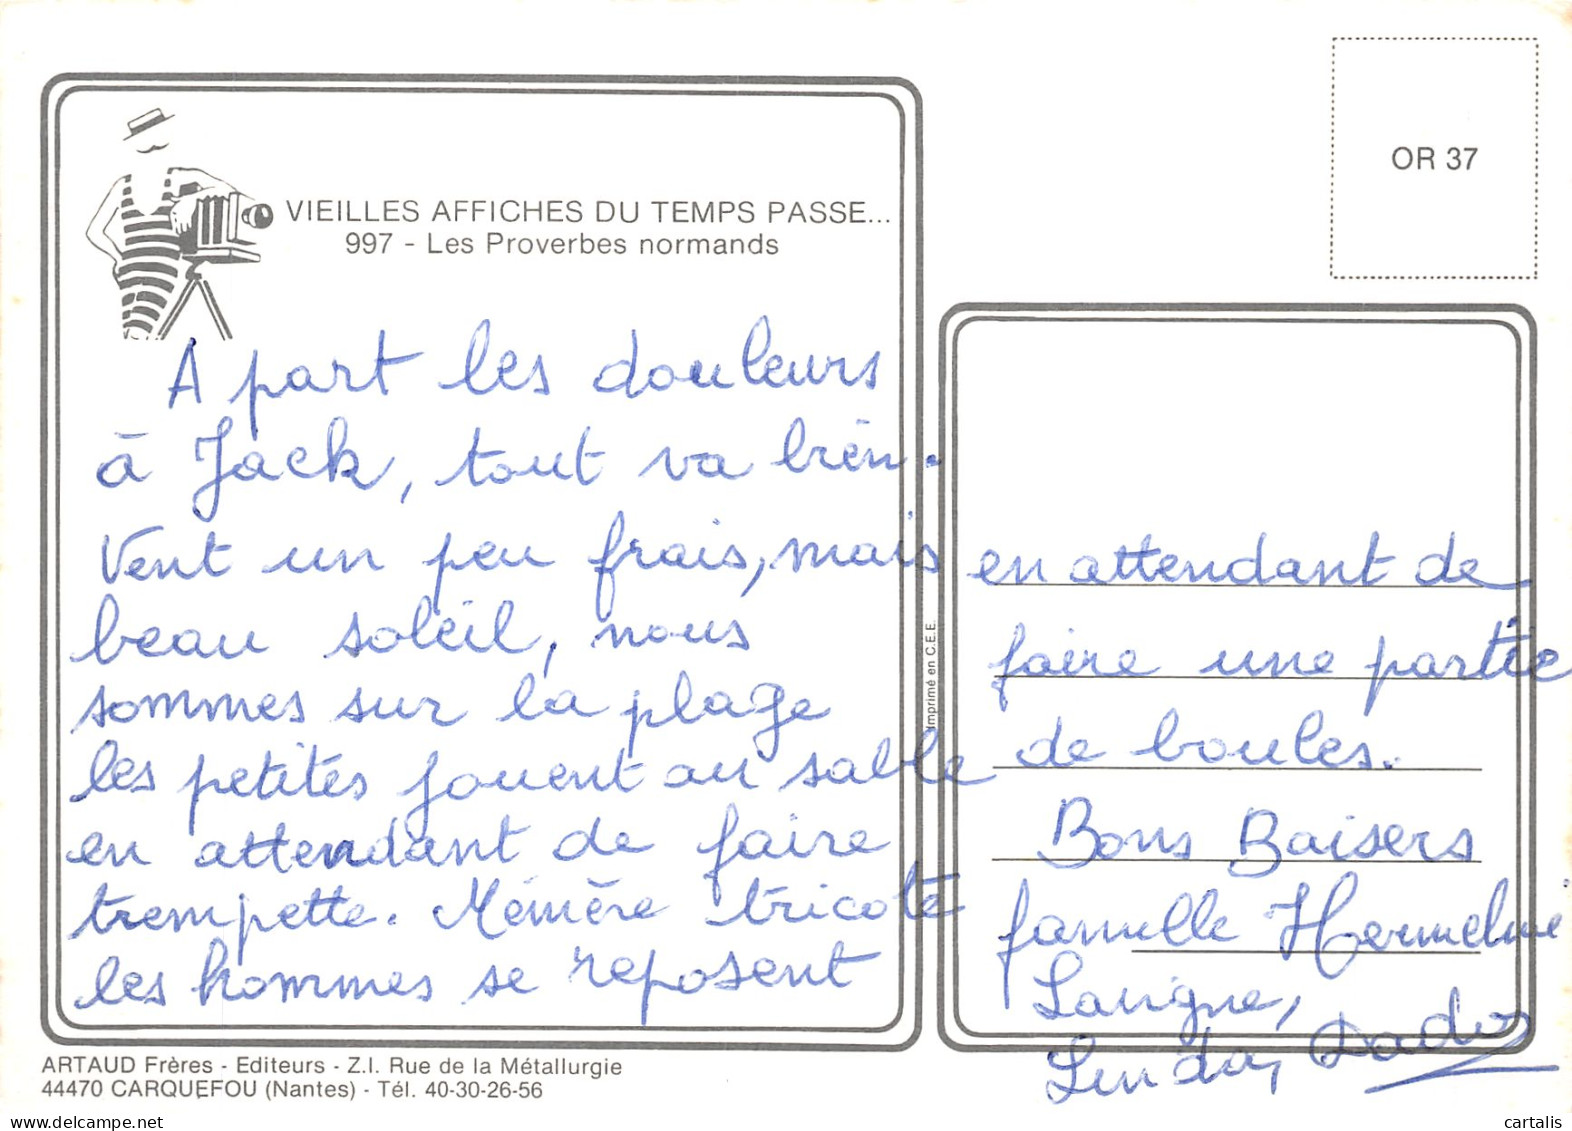 OR 37
VIEILLES AFFICHES DU TEMPS PASSE...
997 - Les Proverbes normands
A part les douleurs
à Jack, tout va bien.
Vent un peu frais, mais
beau soleil, nous
sommes sur la plage
les petites jouent au sable
en attendant de faire
trempette. Mémère tricote
les hommes se reposent
en attendant de
faire une partie
de boules.
Bons Baisers
famille Hermeline
Lavigne,
Linda,
Imprimé en C.E.E.
ARTAUD Frères - Editeurs - Z.I. Rue de la Métallurgie
44470 CARQUEFOU (Nantes) - Tél. 40-30-26-56
cartalis